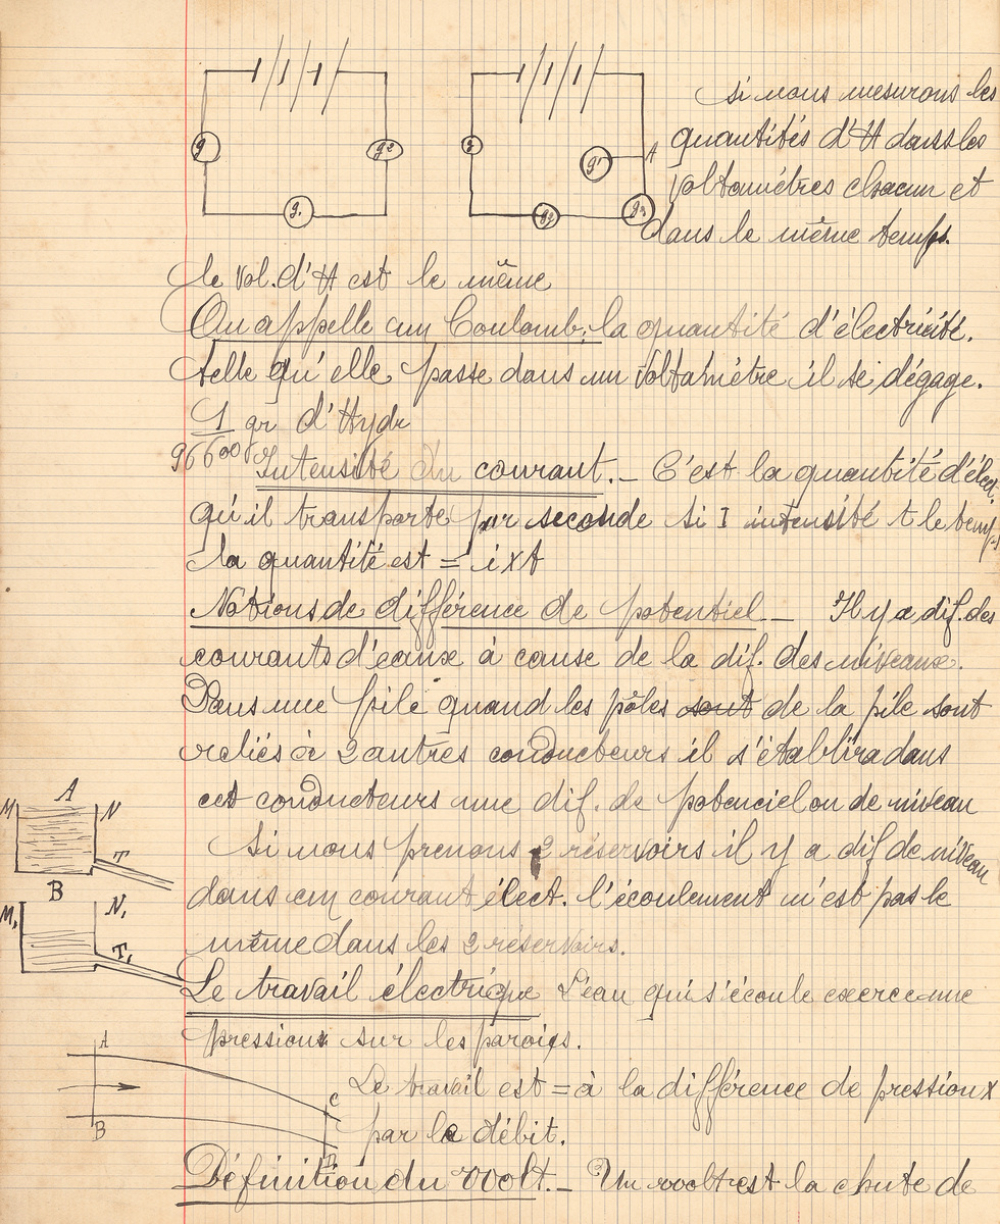 si nous mesurons les
quantités d'H dans les
voltamètres chacun et
dans le même temps.
g
g2
g1
g
g'
A
g2
g3
le vol. d'H est le même
On appelle un Coulomb: la quantité d'électricité.
telle qu'elle passe dans un voltamètre il se dégage.
1 gr d'Hydr
96600
Intensité du courant. _ C'est la quantité d'élect.
qu'il transporte par seconde si I intensité t le temps
la quantité est = i x t
Notions de différence de potentiel _ Il y a dif. des
courants d'eaux à cause de la dif. des niveaux.
Dans une pile quand les pôles sont de la pile sont
reliés à 2 autres conducteurs il s'établira dans
cet conducteurs une dif. de potenciel ou de niveau
A
M N
T
B
Si nous prenons 2 réservoirs il y a dif de niveau
dans un courant élect. l'écoulement n'est pas le
M1 N1
T1
même dans les 2 réservoirs.
Le travail électrique L'eau qui s'écoule exerce une
pression sur les parois.
A
B
C
D
Le travail est = à la différence de pression x
par le débit.
Définition du voolt. _ Un voolt est la chute de